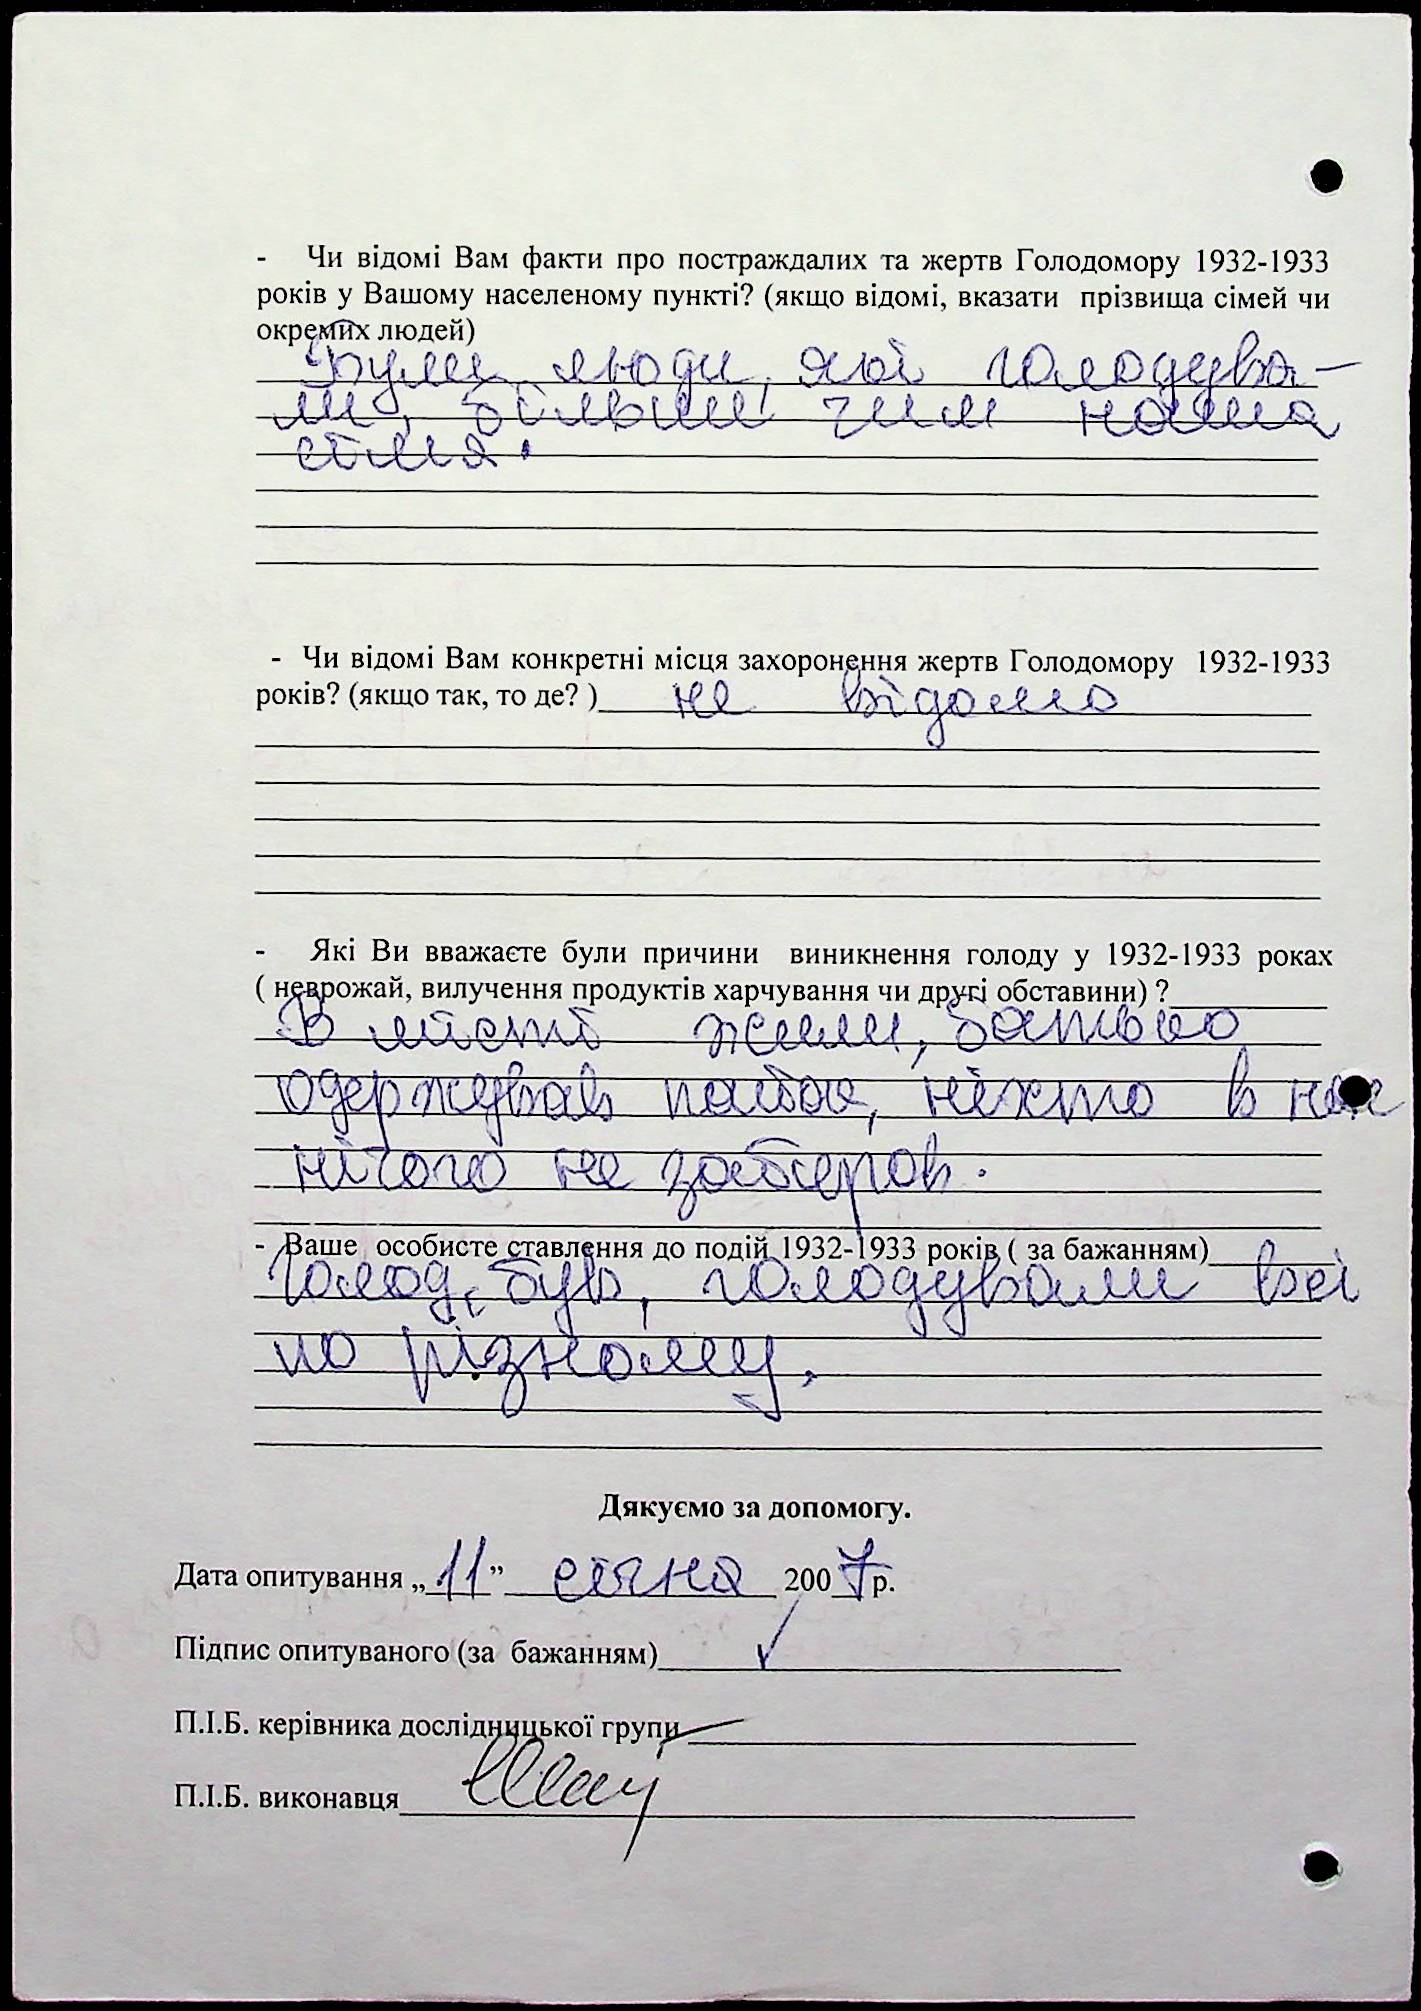 - Чи відомі Вам факти про постраждалих та жертв Голодомору 1932-1933
років у Вашому населеному пункті? (якщо відомі, вказати прізвища сімей чи
окремих людей)
Були люди, які голодува-
ли, більше чим наша
сімя.
- Чи відомі Вам конкретні місця захоронення жертв Голодомору 1932-1933
років? (якщо так, то де? ) не відомо
- Які Ви вважаєте були причини виникнення голоду у 1932-1933 роках
( неврожай, вилучення продуктів харчування чи другі обставини) ?
В місті жили, батько
одержував пайок, ніхто в нас
нічого не забирав.
- Ваше особисте ставлення до подій 1932-1933 років ( за бажанням)
Голод був, голодували всі
по різному.
Дякуємо за допомогу.
Дата опитування „11” січня 2007р.
Підпис опитуваного (за бажанням)
П.І.Б. керівника дослідницької групи
П.І.Б. виконавця